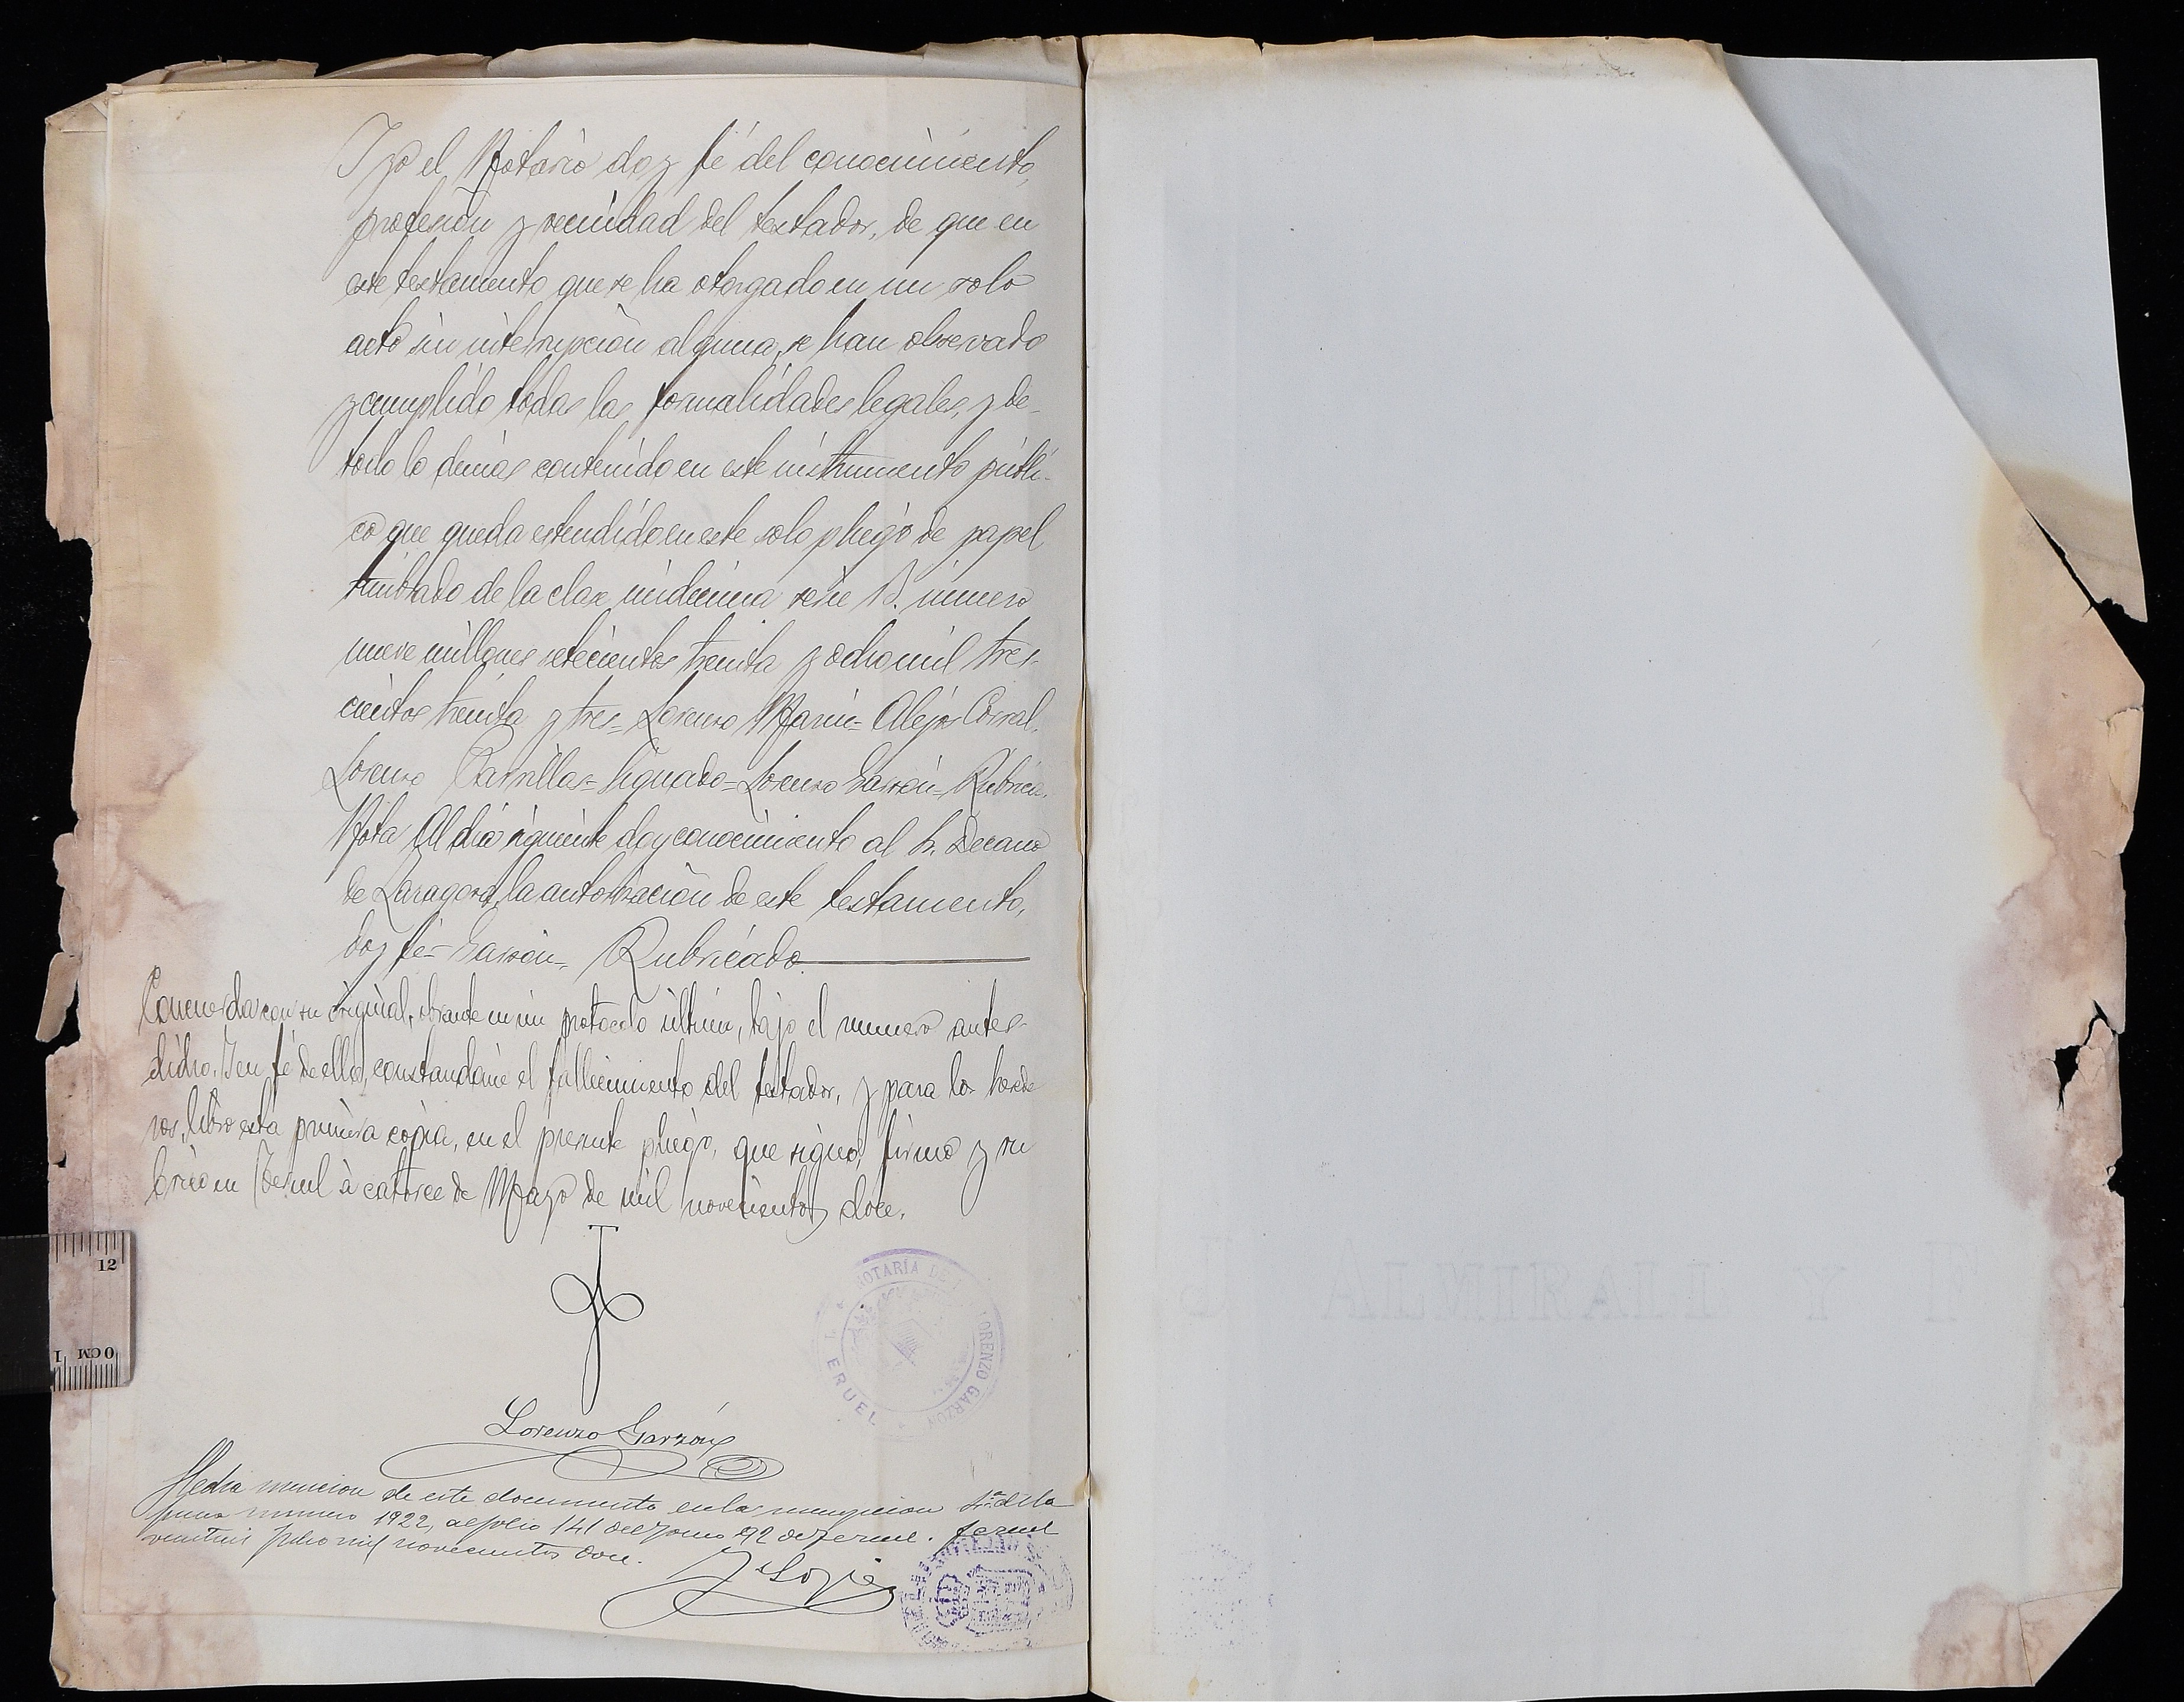 Y yo el Notario doy fé del conocimiento,
profesión y vecindad del testador, de que en
este testamento que se ha otorgado en un solo
acto sin interrupción alguna, se han observado
y cumplido todas las formalidades legales, y de-
todo lo demás contenido en este instrumento públi-
co que queda estendido en este solo pliego de papel
timbrado de la clase undécima serie B. número
nueve millones setecientos treinta y ocho mil tres-
cientos treinta y tres= Lorenzo Marin= Alejos Corral.
Lorenzo Parrillas= Signado= Lorenzo Garzón= Rubrica.
Nota Al día siguiente doy conocimiento al Sr. Decano
de Zaragoza, la autorización de este testamento,
doy fé= Garzón=. Rubricado.
Concuerda con su original, obrante en mi protocolo último, bajo el numero antes-
dicho. Y en fé de ello, constandome el fallecimiento del testador, y para los herede
ros, libro esta primera copia, en el presente pliego, que signo, firmo y ru
brico en Teruel à catorce de Mayo de mil novecientos doce.
NOTARÍA DE LORENZO GARZÓN
TERUEL
Lorenzo Garzón
Hecha mencion de este documento en la inscripcion 4ª de la
finca numero 1922, al folio 141 del tomo 92 de Teruel. Teruel
Julio mil novecientos doce.
12
0CM 1